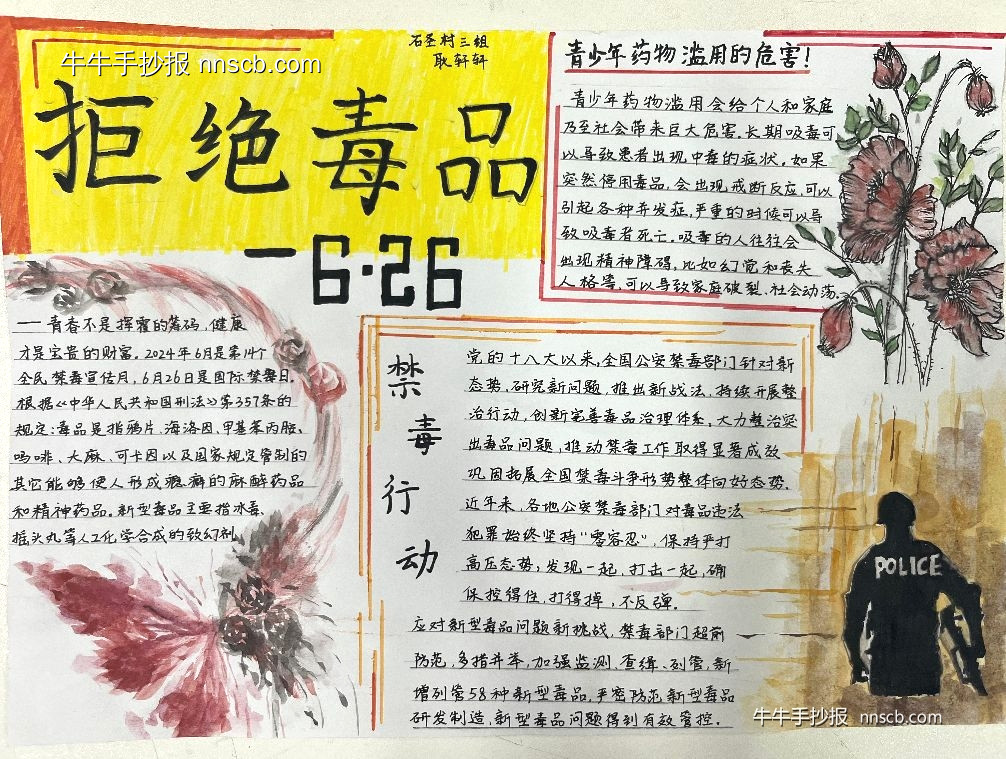 牛牛手抄报 nnscb.com
石圣村三组
耿轩轩
拒绝毒品
—6·26
青少年药物滥用的危害!
青少年药物滥用会给个人和家庭
乃至社会带来巨大危害.长期吸毒可
以导致患者出现中毒的症状.如果
突然停用毒品,会出现戒断反应,可以
引起各种并发症,严重的时候可以导
致吸毒者死亡.吸毒的人往往会
出现精神障碍,比如幻觉和丧失
人格等,可以导致家庭破裂、社会动荡.
——青春不是挥霍的筹码,健康
才是宝贵的财富.2024年6月是第14个
全民禁毒宣传月,6月26日是国际禁毒日.
根据《中华人民共和国刑法》第357条的
规定:毒品是指鸦片、海洛因、甲基苯丙胺、
吗啡、大麻、可卡因以及国家规定管制的
其它能够使人形成瘾癖的麻醉药品
和精神药品.新型毒品主要指冰毒、
摇头丸等人工化学合成的致幻剂
禁毒行动
党的十八大以来,全国公安禁毒部门针对新
态势、研究新问题,推出新战法,持续开展整
治行动,创新完善毒品治理体系,大力整治突
出毒品问题,推动禁毒工作取得显著成效
巩固拓展全国禁毒斗争形势整体向好态势.
近年来,各地公安禁毒部门对毒品违法
犯罪始终坚持“零容忍”,保持严打
高压态势,发现一起,打击一起,确
保控得住,打得掉,不反弹.
应对新型毒品问题新挑战,禁毒部门超前
防范,多措并举,加强监测,查缉、列管,新
增列管58种新型毒品,严密防范新型毒品
研发制造,新型毒品问题得到有效管控.
POLICE
牛牛手抄报 nnscb.com